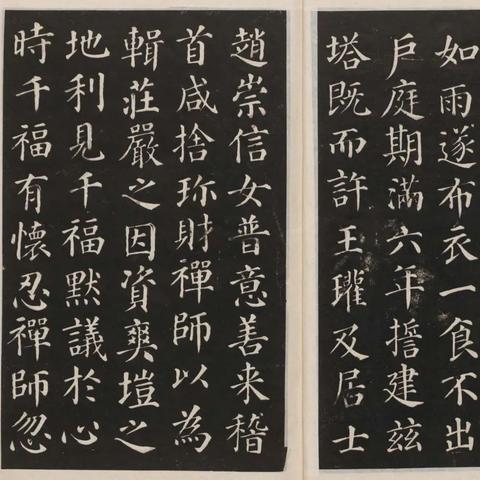 如雨遂布衣一食不出
戶庭期滿六年誓建兹
塔既而許王瓘及居士
趙崇信女普意善来稽
首咸捨珎財禪師以為
輯莊嚴之因資爽塏之
地利見千福默議於心
時千福有懷忍禪師忽